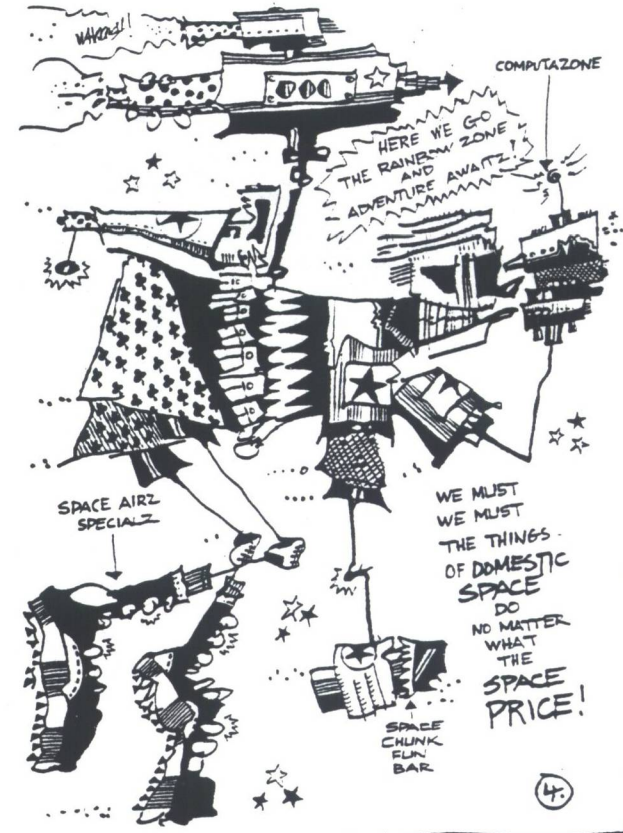 COMPUTAZONE
HERE WE GO
THE RAINBOW ZONE
AND
ADVENTURE AWAITZ!
SPACE AIRZ
SPECIALZ
WE MUST
WE MUST
THE THINGS
OF DOMESTIC
SPACE
DO
NO MATTER
WHAT
THE
SPACE
PRICE!
SPACE
CHUNK
FUN
BAR
4.